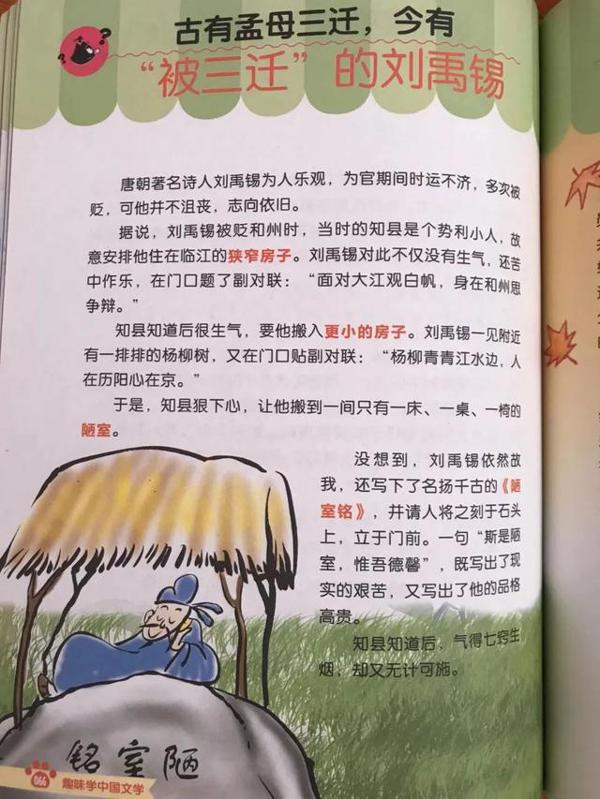 古有孟母三迁，今有
“被三迁”的刘禹锡
唐朝著名诗人刘禹锡为人乐观，为官期间时运不济，多次被
贬，可他并不沮丧，志向依旧。
据说，刘禹锡被贬和州时，当时的知县是个势利小人，故
意安排他住在临江的狭窄房子。刘禹锡对此不仅没有生气，还苦
中作乐，在门口题了副对联：“面对大江观白帆，身在和州思
争辩。”
知县知道后很生气，要他搬入更小的房子。刘禹锡一见附近
有一排排的杨柳树，又在门口贴副对联：“杨柳青青江水边，人
在历阳心在京。”
于是，知县狠下心，让他搬到一间只有一床、一桌、一椅的
陋室。
没想到，刘禹锡依然故
我，还写下了名扬千古的《陋
室铭》，并请人将之刻于石头
上，立于门前。一句“斯是陋
室，惟吾德馨”，既写出了现
实的艰苦，又写出了他的品格
高贵。
知县知道后，气得七窍生
烟，却又无计可施。
铭室陋
066
趣味学中国文学